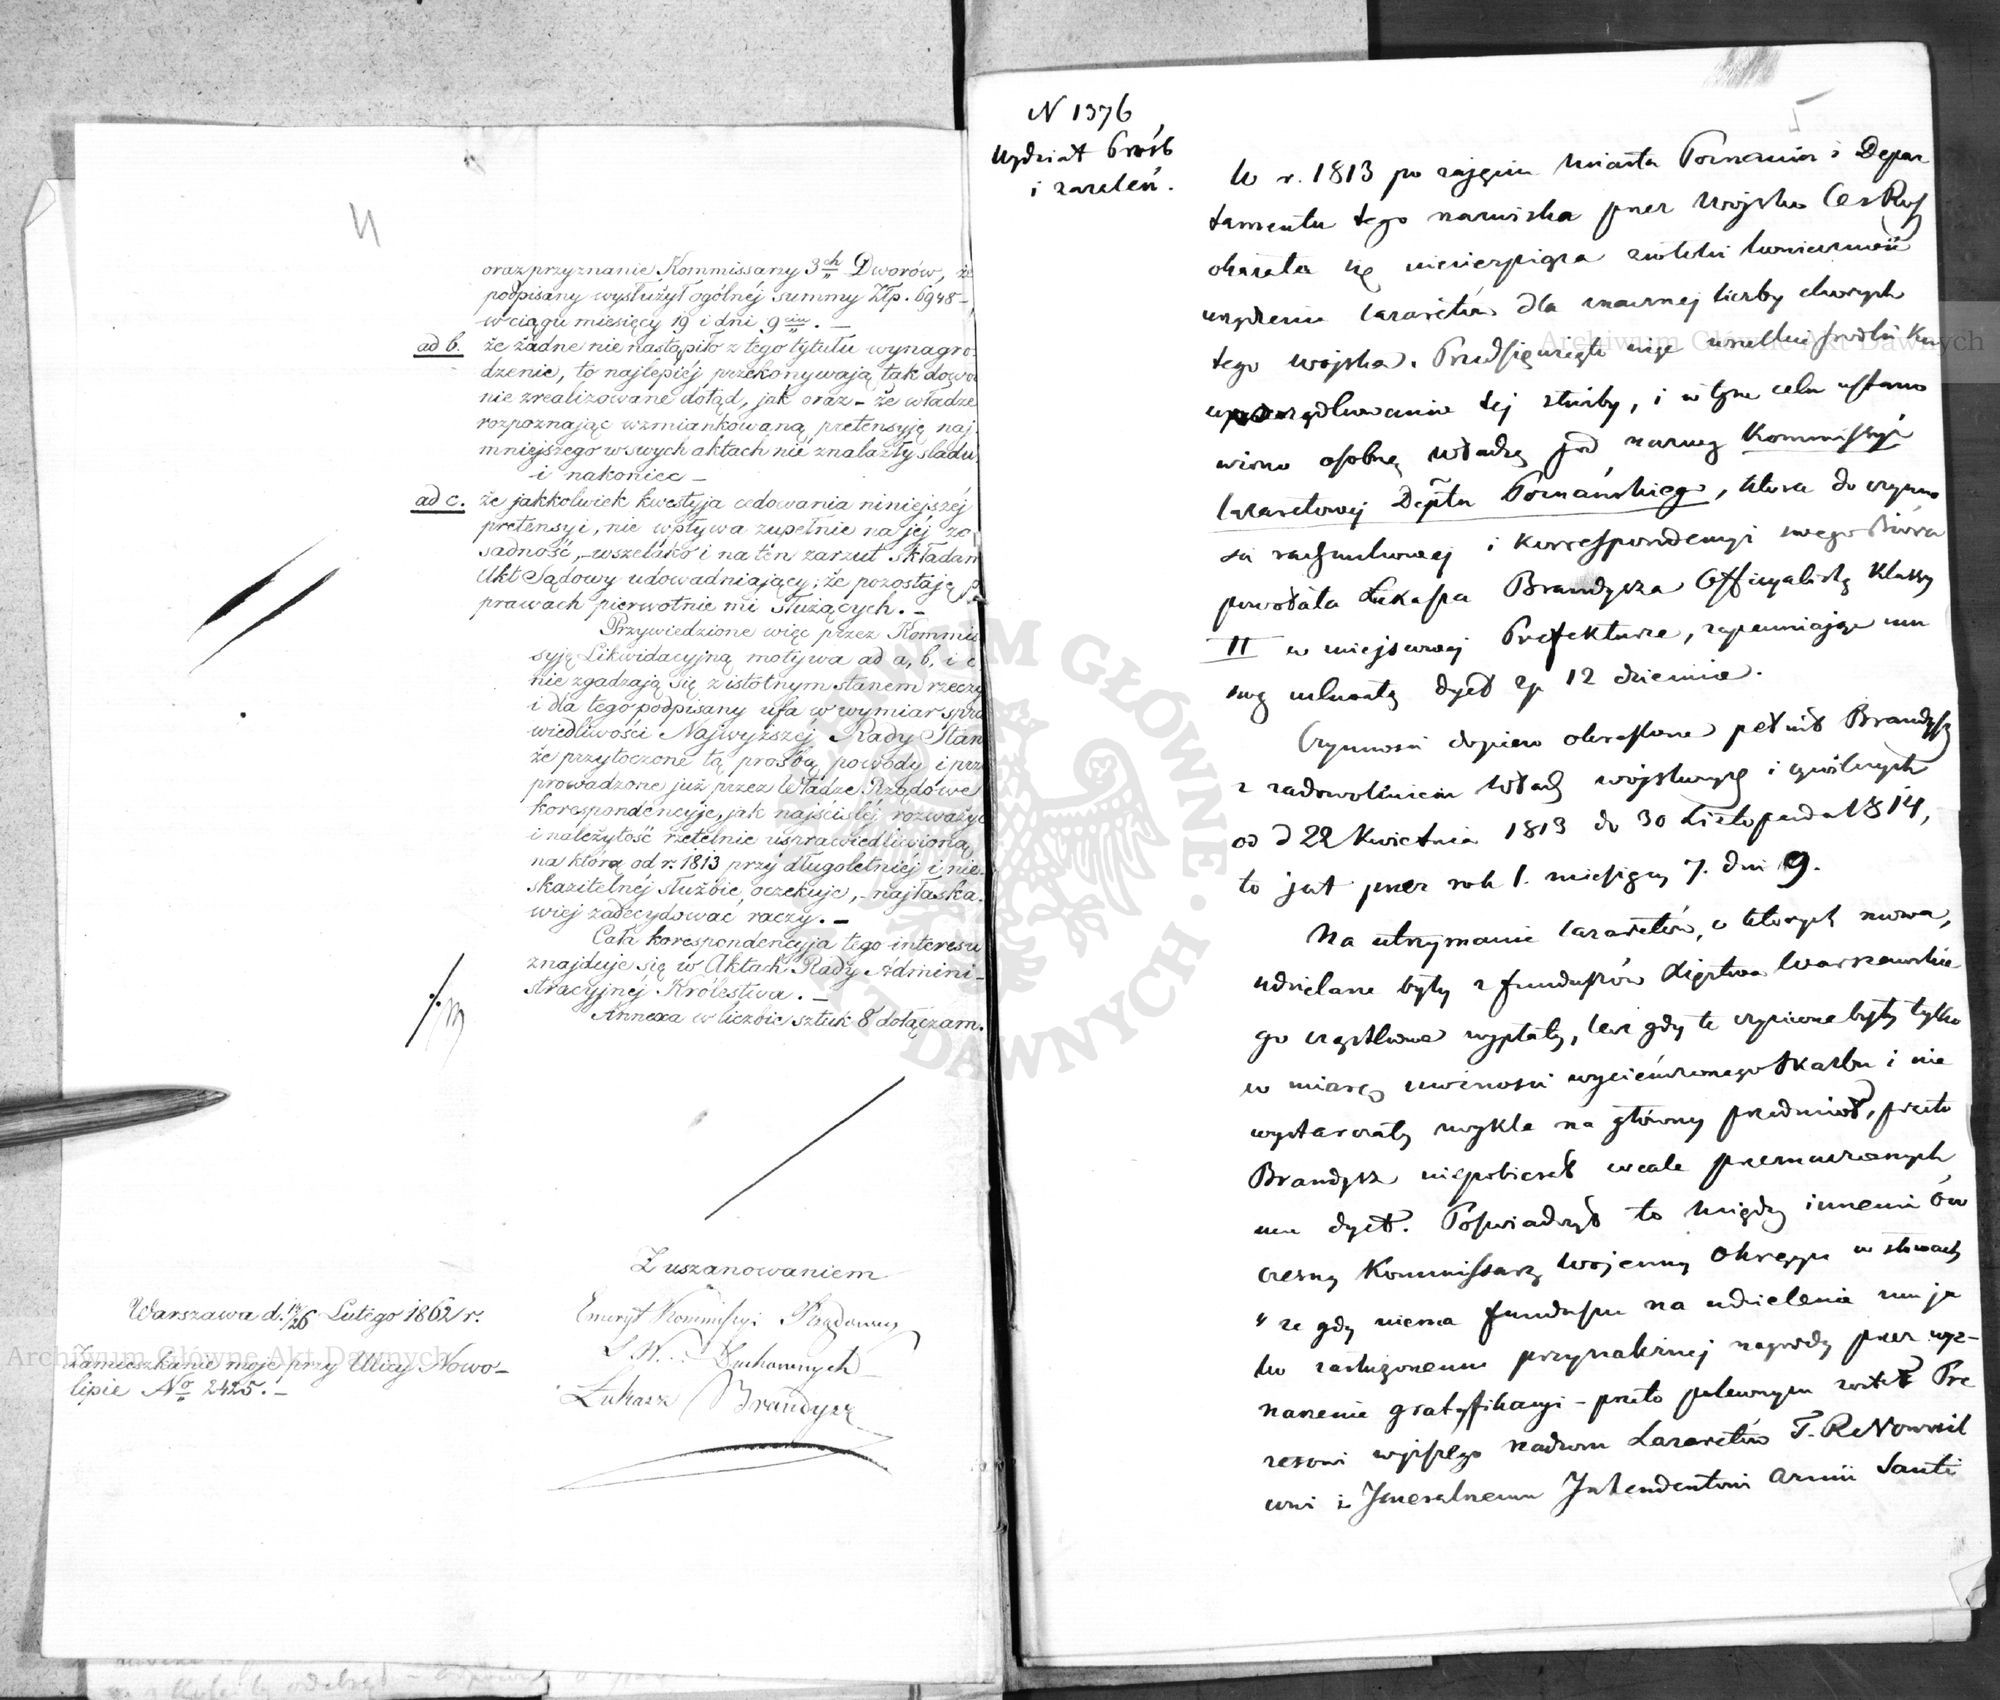 oraz przyznanie Kommissarzy 3ch Dworów, że
podpisany wysłużył ogólnéj summy Złp. 6948 –
w ciągu miesięcy 19 i dni 9ciu. –
ad b. że żadne nie nastąpiło z tego tytułu wynagro-
dzenie, to najlepiéj przekonywają tak dowo
nie zrealizowane dotąd, jak oraz – że władze
rozpoznając wzmiankowaną pretensyję naj-
mniejszego w swych aktach nie znalazły śladu
i nakoniec –
ad c. że jakkolwiek kwestyja cedowania niniejszéj
pretensyi, nie wpływa zupełnie na jéj za
sadność, – wszelako i na ten zarzut składam
Akt Sądowy udowadniający; że pozostaję p
prawach pierwotnie mi służących. –
Przywiedzione więc przez Kommis
syję Likwidacyjną motywa ad a, b, i c
nie zgadzają się z istotnym stanem rzeczy
i dla tego podpisany ufa w wymiar spra
wiedliwości Najwyższéj Rady Stan
że przytoczone tą prośbą powody i prze
prowadzone już przez Władze Rządowe
korespondencyje, jak najściśléj rozważyć
i należytość rzetelnie usprawiedliwioną
na którą od r. 1813 przy długoletniéj i nie-
skazitelnéj służbie, oczekuje, – najłaska-
wiej zadecydować raczy. –
Cała korespondencyja tego interesu
znajduje się w Aktach Rady Admini-
stracyjnéj Królestwa. –
Annexa w liczbie sztuk 8 dołączam.
Z uszanowaniem
Warszawa d. 14/26 Lutego 1862 r.
Emeryt Kommissyi Rządowej
S. W. i Duchownych
Zamieszkanie moje przy Ulicy Nowo-
lipie No 2425. –
Łukasz Brandysz
N 1376
Wydział Próśb
i zażaleń.
5
W r. 1813 po zajęciu Miasta Poznania i Depar
tamentu tego nazwiska przez Wojsko Ces Ros
okazała się niecierpiąca zwłoki konieczność
urządzenia lazaretów dla znacznej liczby chorych
tego wojska. Przedsięwzięto więc wszelkie środki ku
uporządkowaniu tej służby, i w tym celu ustano
wiono osobną Władzę pod nazwą Kommissyi
lazaretowej Deptu Poznańskiego, która do czynno
ści rachunkowej i korrespondencyi swego Biura
powołała Łukasza Brandysza Officyalistę Klassy
II w miejscowej Prefekturze, zapewniając mu
swą uchwałą dyet zp 12 dziennie.
Czynności dopiero określone pełnił Brandysz
z zadowolnieniem Władz wojskowych i cywilnych
od d 22 Kwietnia 1813 do 30 Listopada 1814,
to jest przez rok 1. miesięcy 7. dni 9.
Na utrzymanie lazaretów, o których mowa,
udzielane były z funduszów Xięstwa Warszawskie
go cząstkowe wypłaty, lecz gdy te czynione były tylko
w miarę możności wycieńczonego Skarbu i nie
wystarczały zwykle na główny przedmiot, przeto
Brandysz niepobierał wcale przeznaczonych
mu dyet. Poświadczył to między innemi ów
czesny Kommissarz Wojenny Okręgu w słowach
„że gdy niema funduszu na udzielenie mu ja
ko zasłużonemu przynależnej nagrody przez wyz-
naczenie gratyfikacyi – przeto poleconym został Pre
zesowi wyższego nadzoru Lazaretów T. R. Nowosil
cowi i Jeneralnemu Intendentowi Armii Santi
Archiwum Główne Akt Dawnych
Archiwum Główne Akt Dawnych
ARCHIWUM GŁÓWNE AKT DAWNYCH